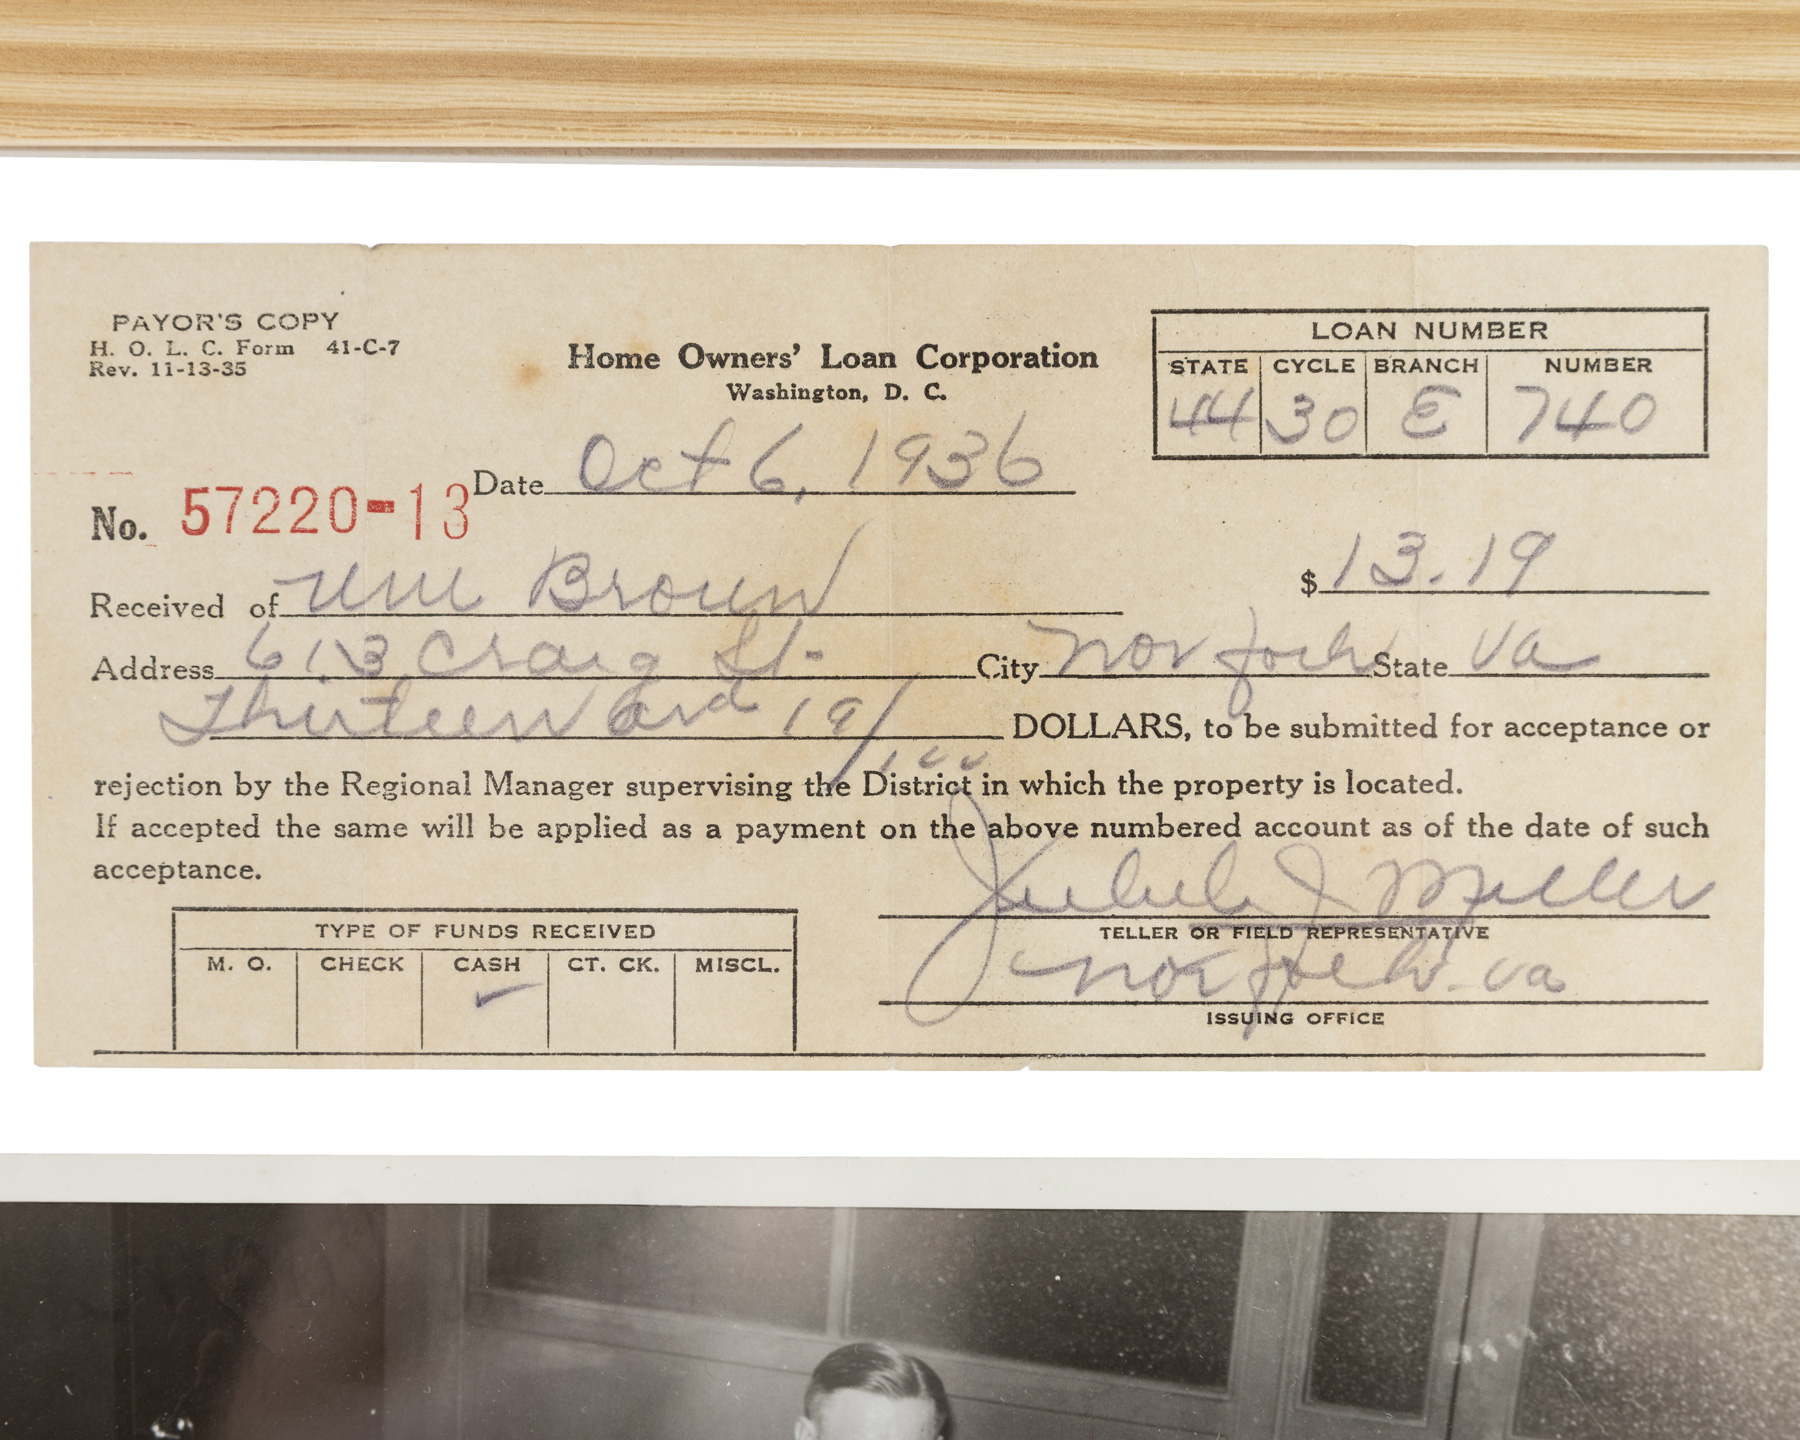 PAYOR'S COPY
H. O. L. C. Form 41-C-7
Rev. 11-13-35
Home Owners' Loan Corporation
Washington, D. C.
LOAN NUMBER
STATE CYCLE BRANCH NUMBER
44 30 E 740
Date Oct 6, 1936
No. 57220-13
Received of Wm Brown $ 13.19
Address 613 Craig St. City Norfolk State Va
Thirteen and 19/100 DOLLARS, to be submitted for acceptance or
rejection by the Regional Manager supervising the District in which the property is located.
If accepted the same will be applied as a payment on the above numbered account as of the date of such
acceptance.
J Miller
TELLER OR FIELD REPRESENTATIVE
Norfolk Va
ISSUING OFFICE
TYPE OF FUNDS RECEIVED
M. O. CHECK CASH CT. CK. MISCL.